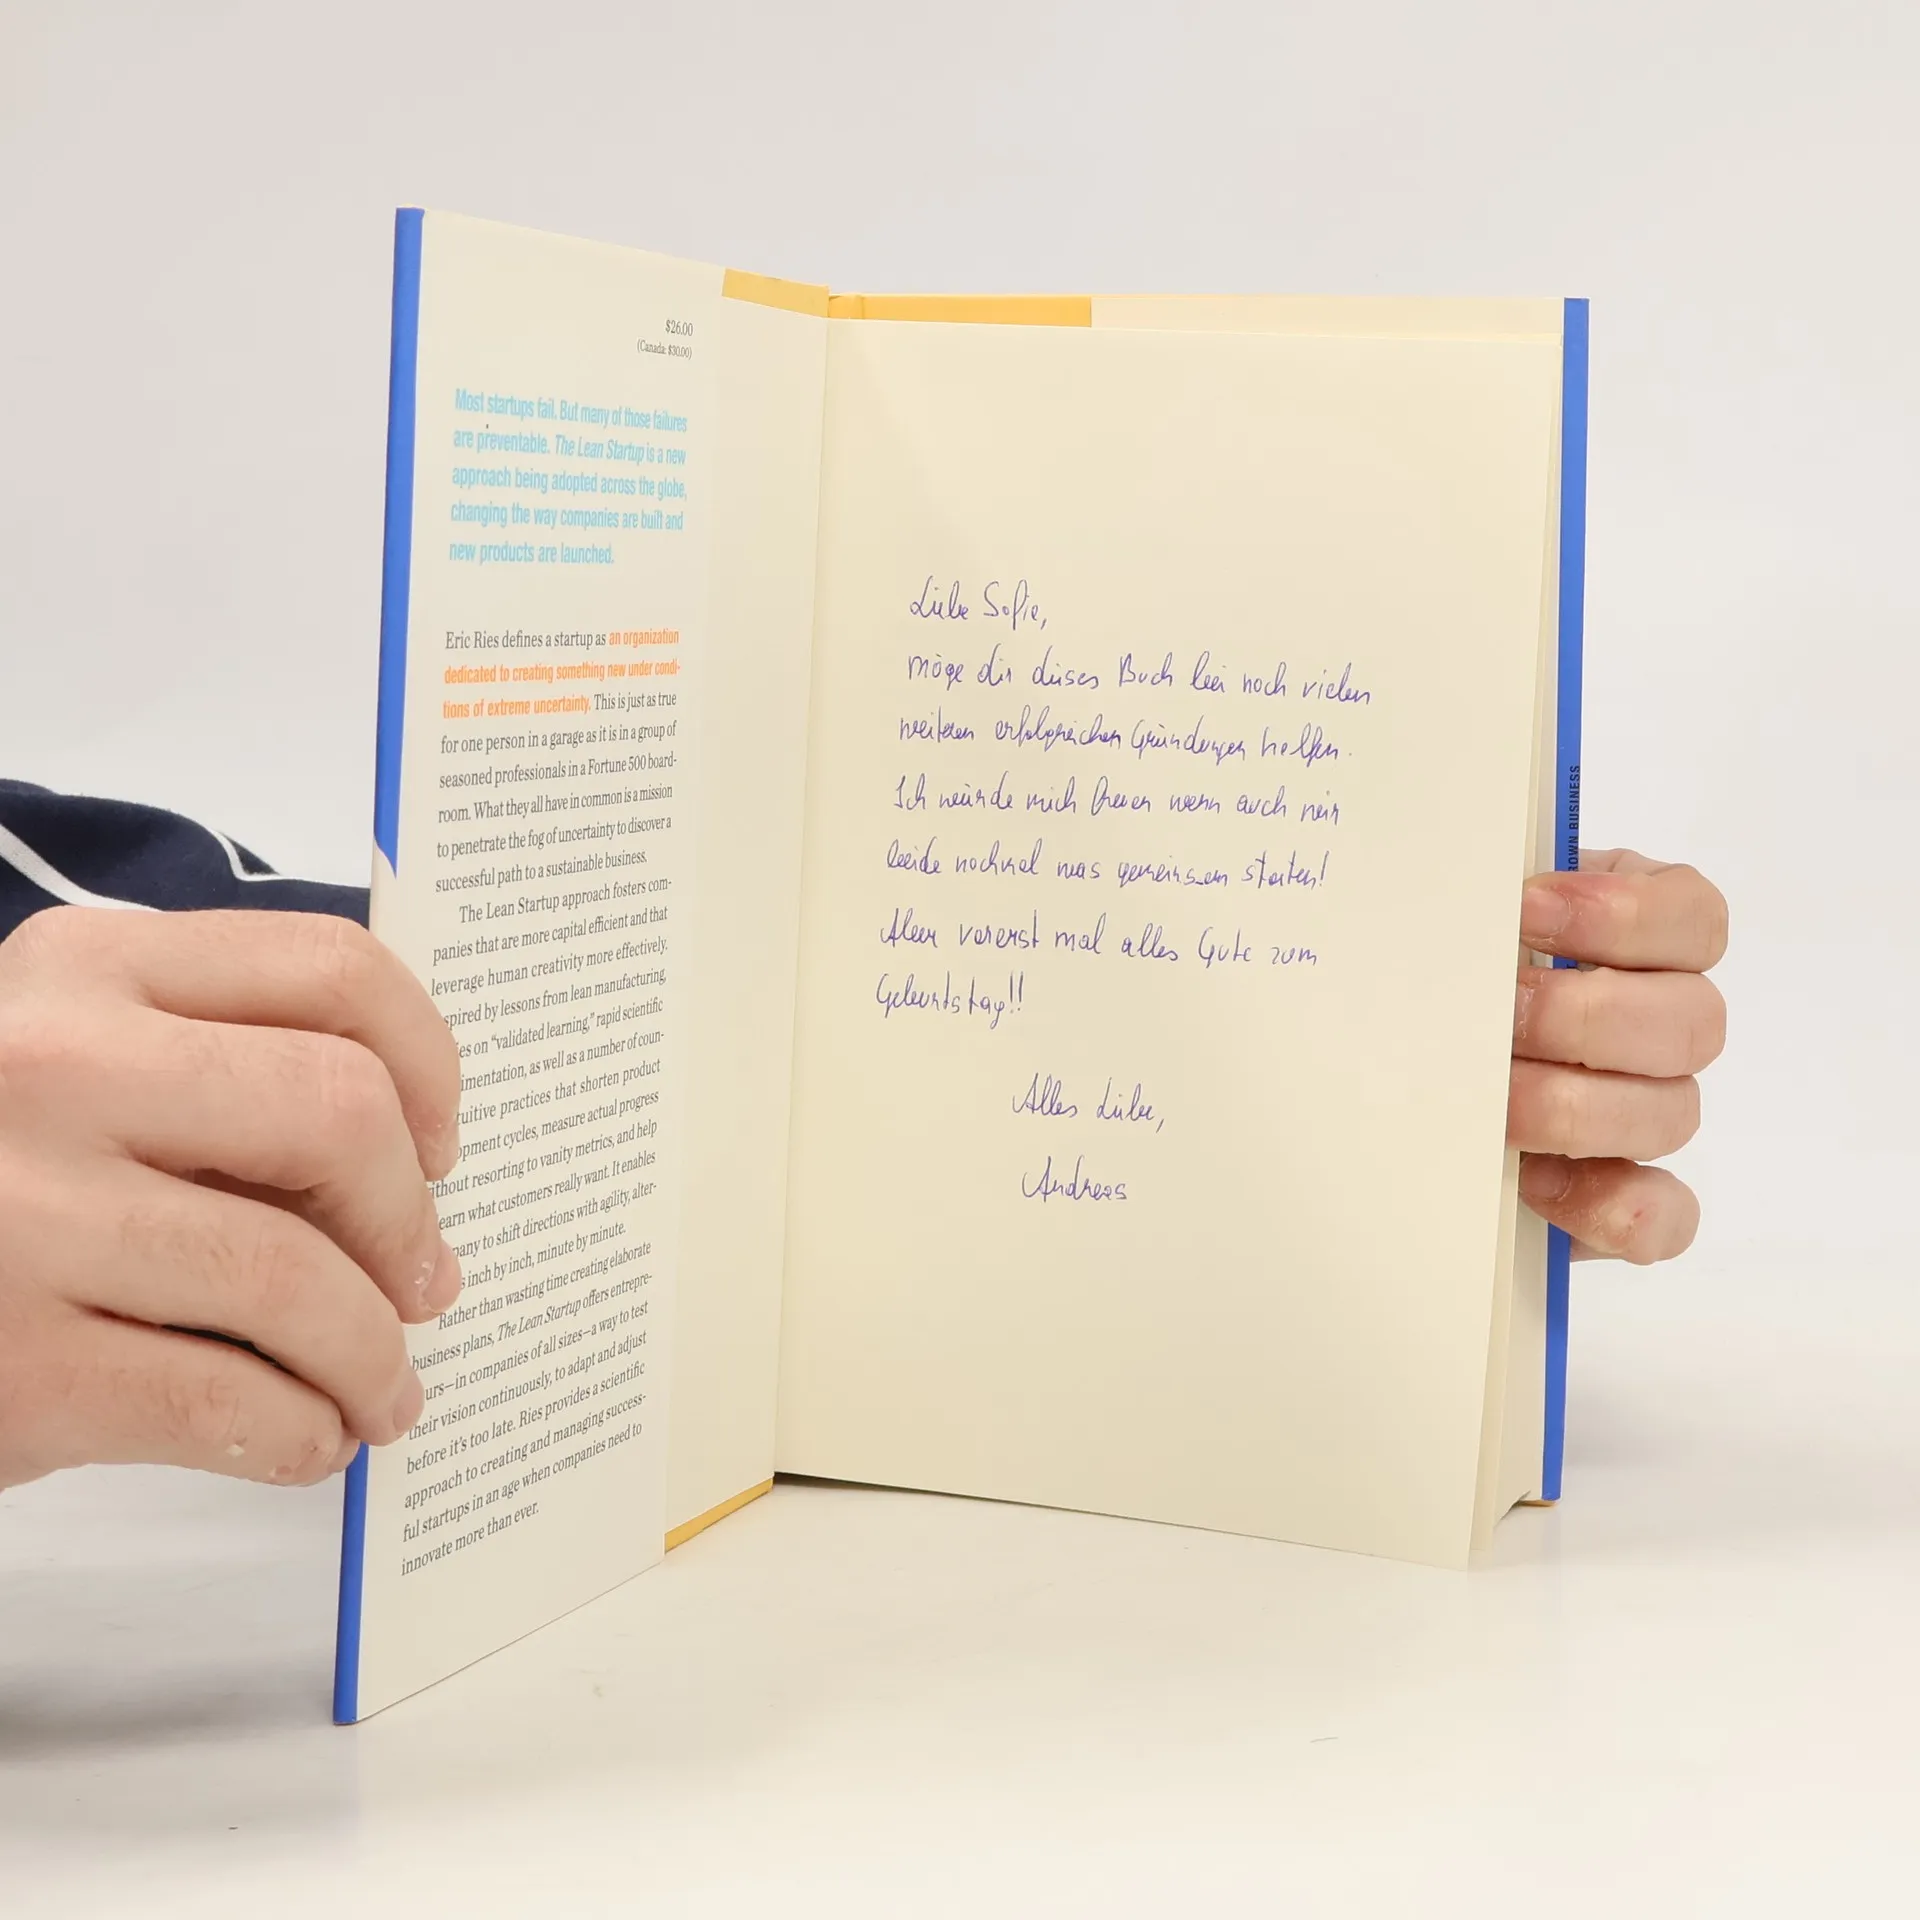 $26.00
(Canada: $30.00)
Most startups fail. But many of those failures
are preventable. The Lean Startup is a new
approach being adopted across the globe,
changing the way companies are built and
new products are launched.
Eric Ries defines a startup as an organization
dedicated to creating something new under condi-
tions of extreme uncertainty. This is just as true
for one person in a garage as it is in a group of
seasoned professionals in a Fortune 500 board-
room. What they all have in common is a mission
to penetrate the fog of uncertainty to discover a
successful path to a sustainable business.
The Lean Startup approach fosters com-
panies that are more capital efficient and that
leverage human creativity more effectively.
spired by lessons from lean manufacturing,
es on “validated learning,” rapid scientific
imentation, as well as a number of coun-
tuitive practices that shorten product
opment cycles, measure actual progress
thout resorting to vanity metrics, and help
earn what customers really want. It enables
pany to shift directions with agility, alter-
s inch by inch, minute by minute.
Rather than wasting time creating elaborate
business plans, The Lean Startup offers entrepre-
urs—in companies of all sizes—a way to test
their vision continuously, to adapt and adjust
before it’s too late. Ries provides a scientific
approach to creating and managing success-
ful startups in an age when companies need to
innovate more than ever.
Liebe Sofie,
möge dir dieses Buch bei noch vielen
weiteren erfolgreichen Gründungen helfen.
Ich würde mich freuen wenn auch wir
beide nochmal was gemeinsam starten!
Aber vorerst mal alles Gute zum
Geburtstag!!
Alles Liebe,
Andreas
ROWN BUSINESS